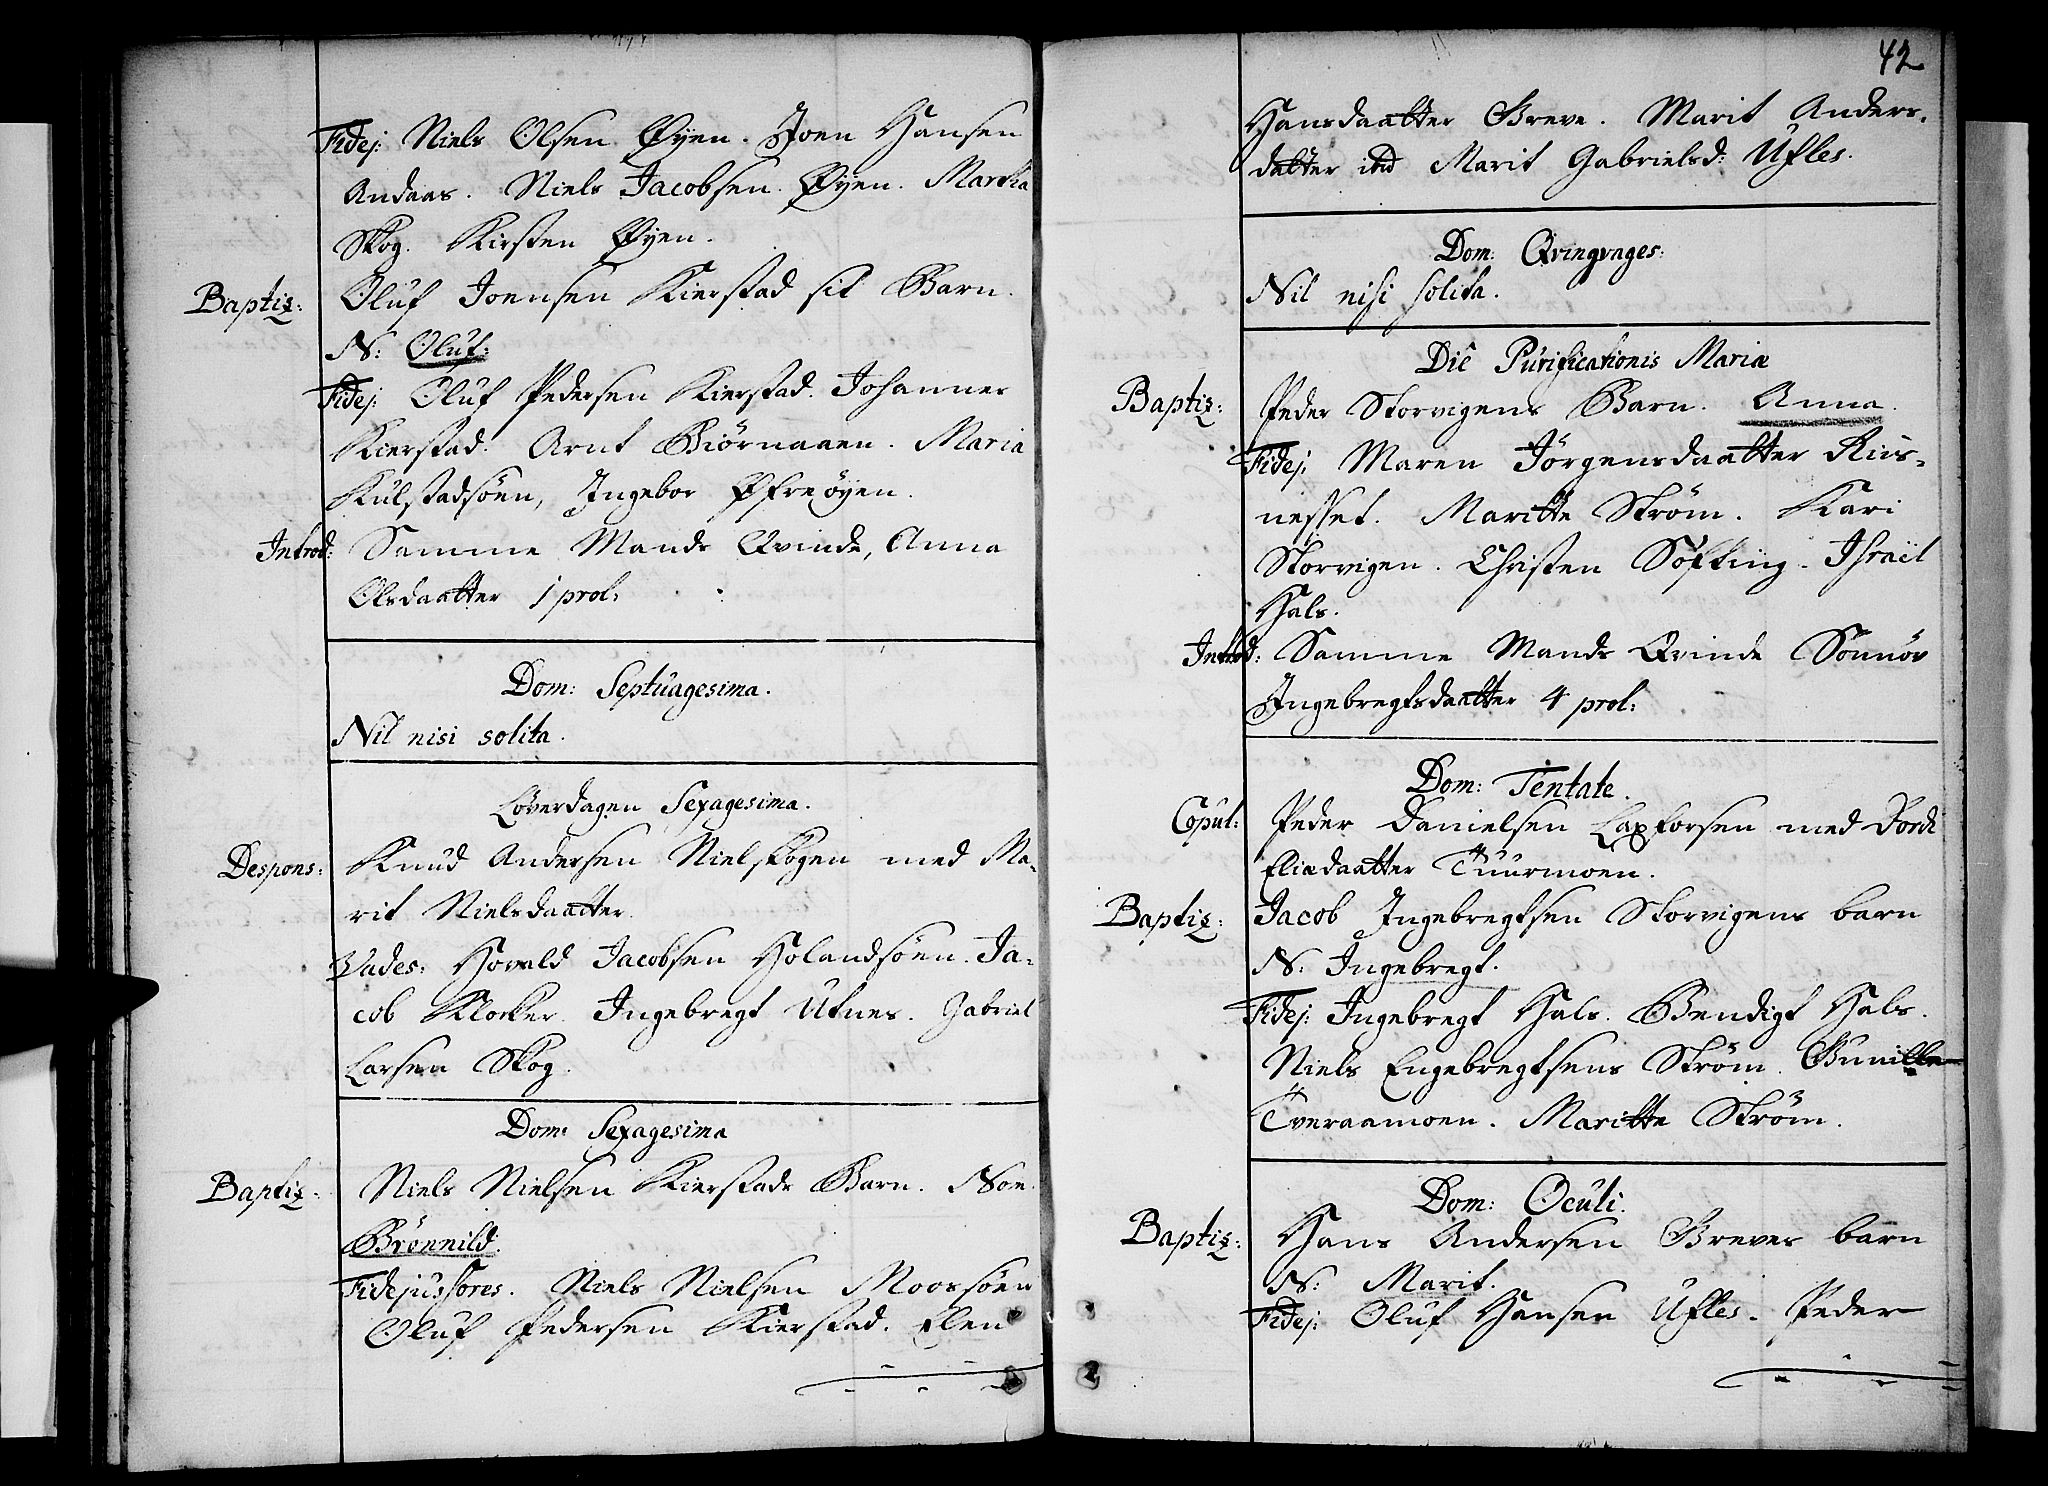 Fidej: Niels Olsen Øyen. Joen Hansen
Andaas. Niels Jacobsen Øyen. Martha
Skog. Kirsten Øyen.
Baptiz: Oluf Joensen Kierstad sit Barn.
N: Oluf:
Fidej: Oluf Pedersen Kierstad. Johannes
Kierstad. Arnt Biørnaaen. Maria
Kulstadsøen, Ingebor Øfreøyen.
Introd: Samme Mands Qvinde, Anna
Olsdaatter 1 prol:
Dom: Septuagesima.
Nil nisi solita.
Løverdagen Sexagesima.
Despons: Knud Andersen Nielskogen med Ma-
rit Nielsdaatter.
Vades: Horald Jacobsen Holandsøen. Ja-
cob Klocker. Ingebregt Utnes. Gabriel
Larsen Skog.
Dom: Sexagesima
Baptiz: Niels Nielsen Kierstads Barn. Nom.
Brønnild.
Fidejussores. Niels Nielsen Moossøen
Oluf Pedersen Kierstad. Elen
42
Hansdaatter Greve. Marit Anders-
datter ibd Marit Gabrielsd: Ufles.
Dom: Qvinqvages:
Nil nisi solita.
Die Purificationis Mariæ
Baptiz: Peder Storvigens Barn. Anna.
Fidej: Maren Jørgensdaatter Riis-
nesset. Maritte Strøm. Kari
Storvigen. Christen Søfting. Israel
Hals.
Introd: Samme Mands Qvinde Sønnøv
Ingebregtsdaatter 4 prol:
Dom: Tentate.
Copul: Peder Danielsen Laxforsen med Dordi
Eliædaatter Tuurmoen.
Baptiz: Jacob Ingebregtsen Storvigens barn
N: Ingebregt.
Fidej: Ingebregt Hals. Bendigt Hals.
Niels Engebregtsens Strøm. Gunille
Tveraamoen. Maritte Strøm.
Dom: Oculi.
Baptiz: Hans Andersen Greves barn
N: Marit.
Fidej: Oluf Hansen Ufles. Peder